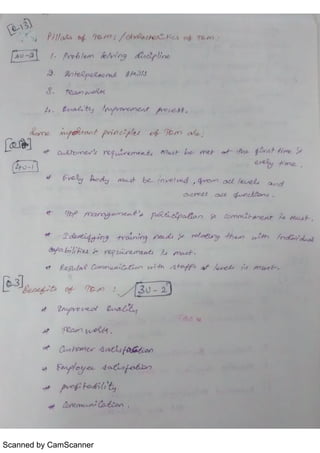 [Q.13]
Pillars of TQM: / characteristics of TQM:
[4U-2] 1. Problem Solving discipline
2. Interpersonal skills
3. Teamwork
4. Quality Improvement process.
Some important principles of TQM are;
* Customer's requirements must be met at the first time &
[4U-1] every time.
* Every body must be involved, from all levels and
across all functions.
* Top management's participation & commitment is must.
* Identifying training needs & relating them with individual
capabilities & requirements is must.
* Regular Communication with staffs at levels is must.
[Q.3] Benefits of TQM: [3U-2]
* Improved Quality
* Team work.
* Customer satisfaction
* Employee satisfation.
* profitability
* Communication.
Scanned by CamScanner